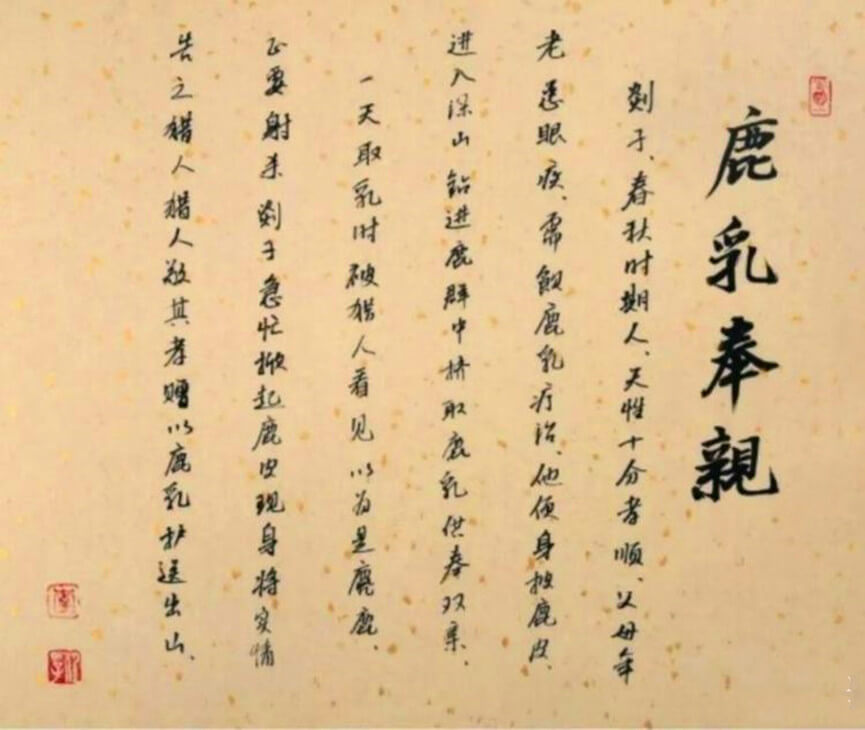 鹿乳奉親
剡子、春秋时期人、天性十分孝顺、父母年
老患眼疾、需飲鹿乳疗治、他便身披鹿皮、
进入深山钻进鹿群中挤取鹿乳供奉双亲、
一天取乳时被猎人看见以为是麂鹿、
正要射杀剡子急忙掀起鹿皮现身将实情
告之猎人猎人敬其孝赠以鹿乳护送出山、